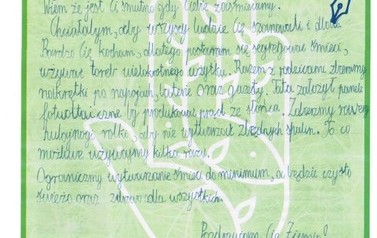 Wiem że jest Ci smutno gdy Ciebie zaśmiecamy.
Chciałabym, aby wszyscy ludzie Cię szanowali i dbali.
Bardzo Cię kocham, dlatego postaram się segregować śmieci,
używać toreb wielokrotnego użytku. Razem z rodzicami zbieramy
nakrętki po napojach, baterie oraz gazety. Tata założył panele
fotowoltaiczne by produkować prąd ze słońca. Jeździmy rowerem,
hulajnogą rolką aby nie wytwarzać zbędnych spalin. To co
możliwe używajmy kilka razy.
Ograniczmy wytwarzanie śmieci do minimum, a będzie czysto
świeżo oraz zdrowo dla wszystkich.
Pozdrawiam Cię Ziemio!